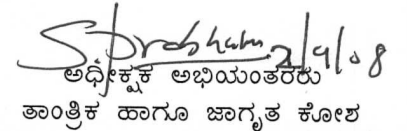 S. Prabhakar 2/9/08
ಅಧೀಕ್ಷಕ ಅಭಿಯಂತರರು
ತಾಂತ್ರಿಕ ಹಾಗೂ ಜಾಗೃತ ಕೋಶ